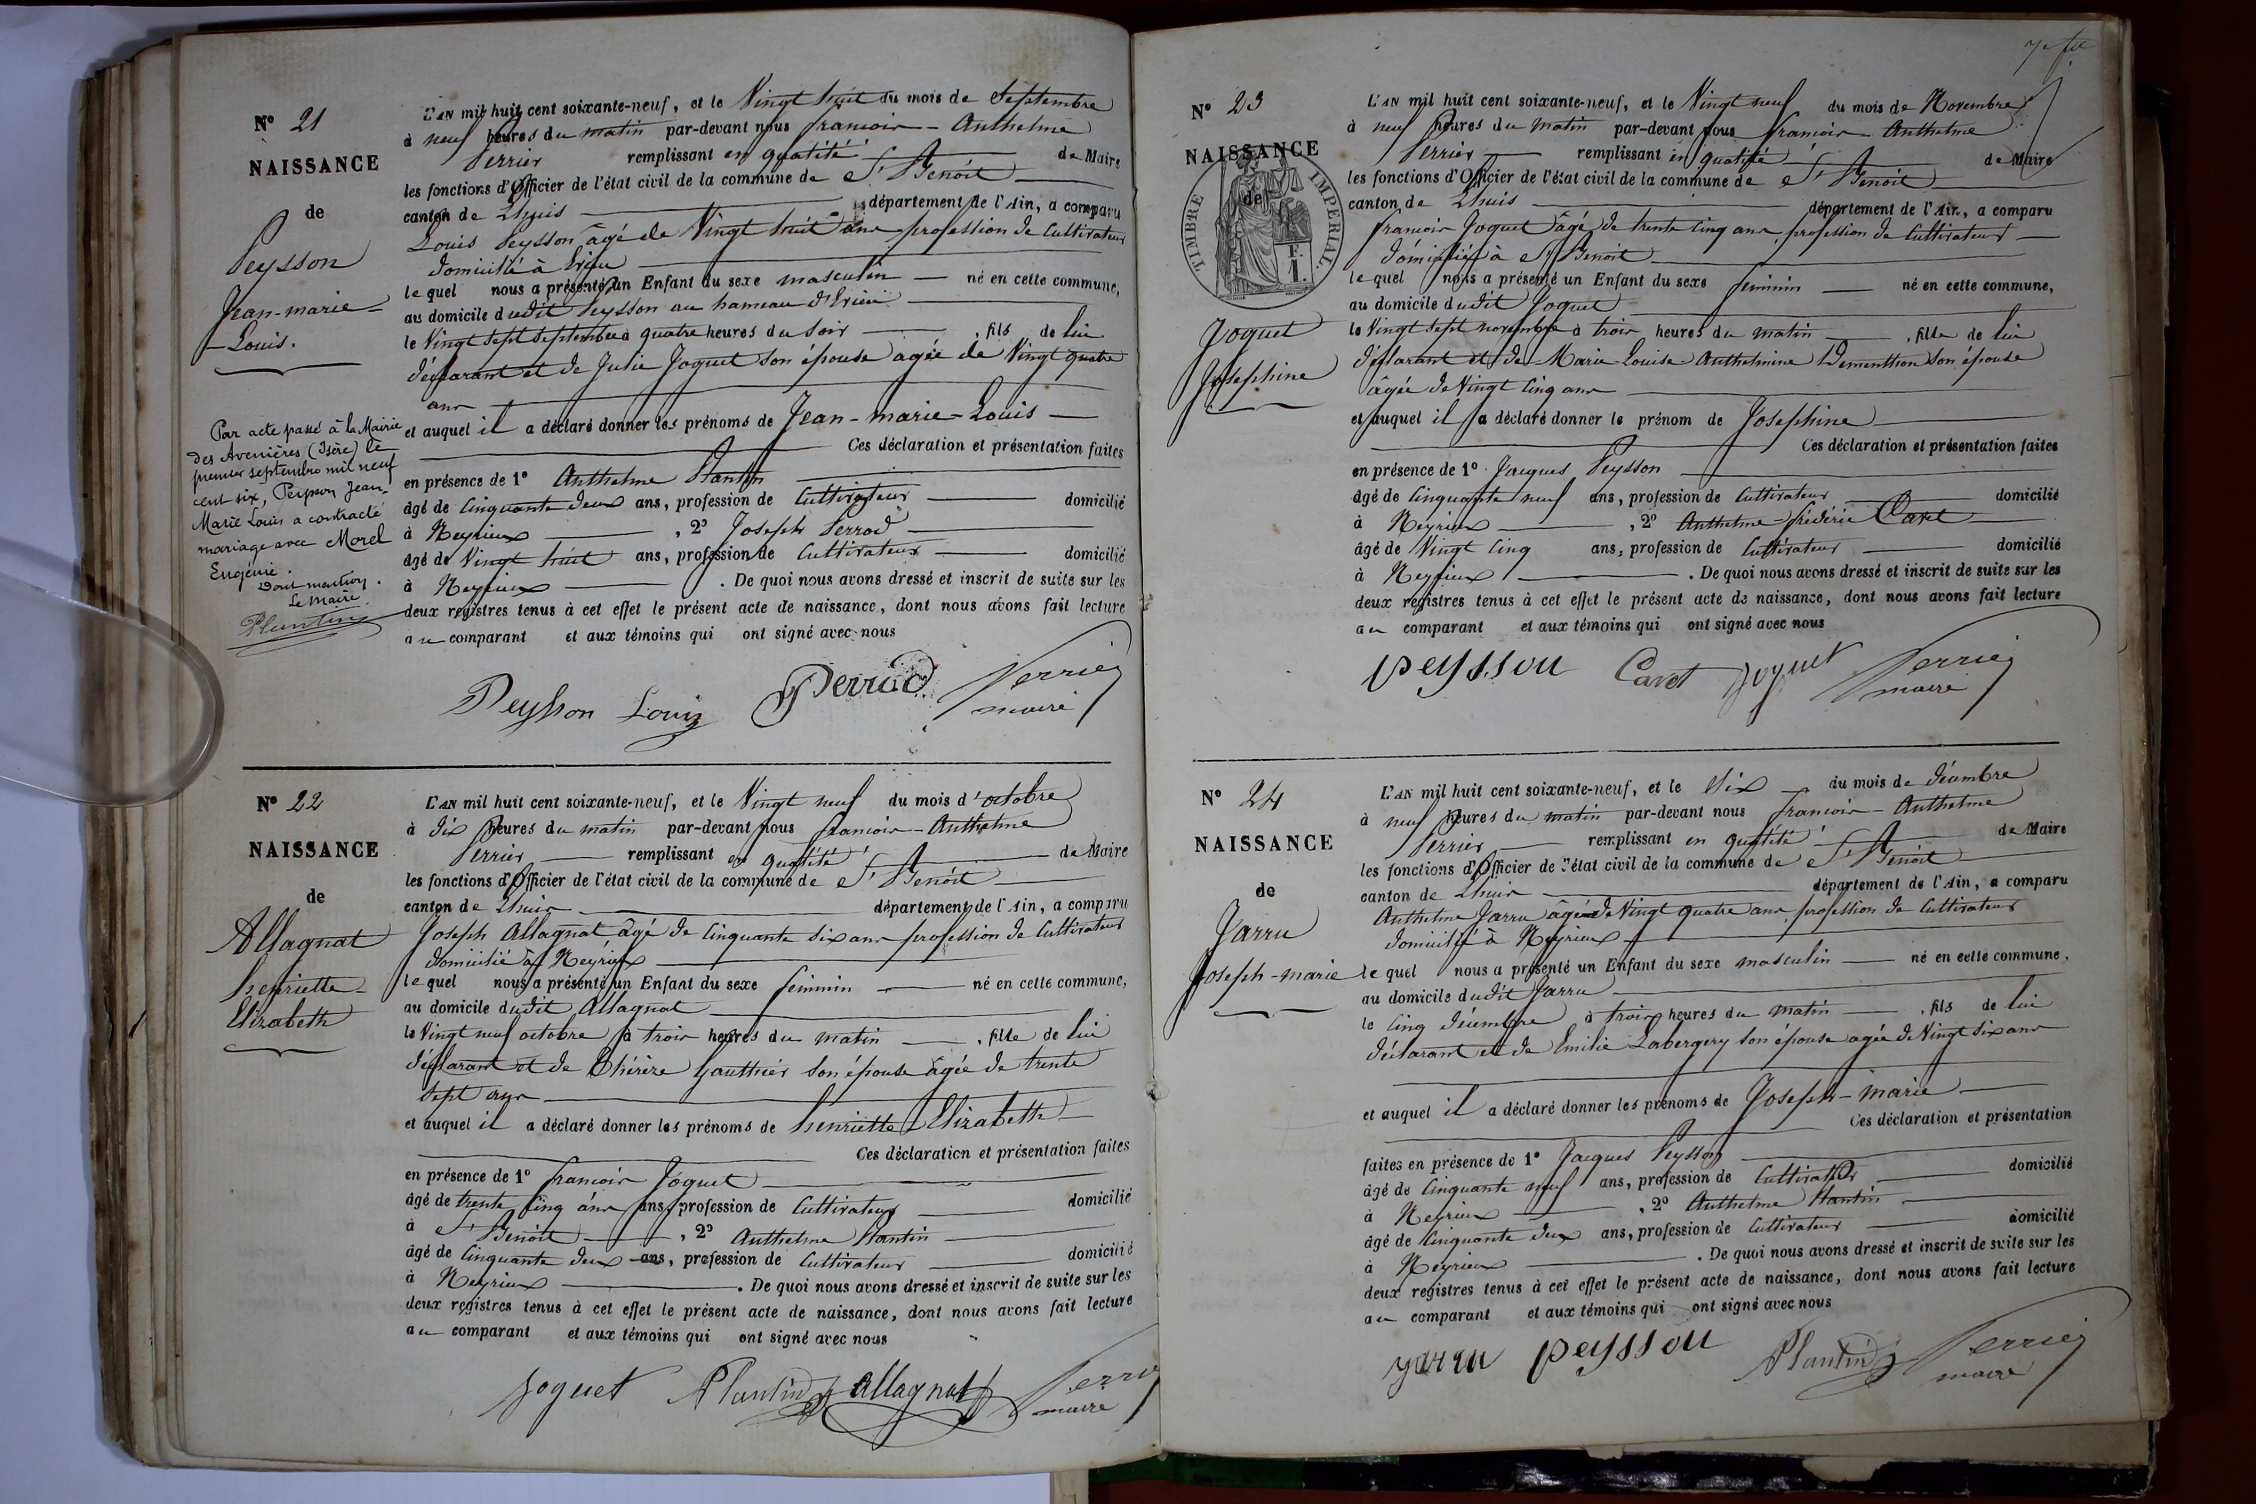 N° 21
NAISSANCE
de
Peysson
Jean-marie-
-Louis.
Par acte passé à la Mairie
des Avenières (Isère) le
premier septembre mil neuf
cent six, Peysson Jean-
Marie Louis a contracté
mariage avec Morel
Eugénie.
Dont mention.
Le Maire.
Plantin
L'AN mil huit cent soixante-neuf, et le Vingt huit du mois de Septembre
à neuf heures du matin par-devant nous francois - Anthelme
Perrier remplissant en qualité de Maire
les fonctions d'Officier de l'état civil de la commune de St Benoit
canton de Lhuis département de l'Ain, a comparu
Louis Peysson âgé de Vingt huit ans profession de Cultivateur
domicilié à Evieu
le quel nous a présenté un Enfant du sexe masculin né en cette commune,
au domicile dudit Peysson au hameau d'Evieu
le Vingt sept septembre à quatre heures du Soir , fils de lui
déclarant et de Julie Joquet son épouse agée de Vingt quatre
ans
et auquel il a déclaré donner les prénoms de Jean-marie-Louis
Ces déclaration et présentation faites
en présence de 1° Anthelme Plantin
âgé de Cinquante deux ans, profession de Cultivateur domicilié
à Neyrieux , 2° Joseph Perrod
âgé de Vingt huit ans, profession de Cultivateur domicilié
à Neyrieux . De quoi nous avons dressé et inscrit de suite sur les
deux registres tenus à cet effet le présent acte de naissance, dont nous avons fait lecture
au comparant et aux témoins qui ont signé avec nous
Peysson Louis Perrod Perrier
maire
N° 22
NAISSANCE
de
Allagnat
henriette-
Elizabeth
L'AN mil huit cent soixante-neuf, et le Vingt neuf du mois d'octobre
à dix heures du matin par-devant nous francois - Anthelme
Perrier remplissant en qualité de Maire
les fonctions d'Officier de l'état civil de la commune de St Benoit
canton de Lhuis département de l'Ain, a comparu
Joseph Allagnat âgé de Cinquante six ans profession de Cultivateur
domicilié à Neyrieux
le quel nous a présenté un Enfant du sexe féminin né en cette commune,
au domicile dudit Allagnat
le Vingt neuf octobre à trois heures du matin , fille de lui
déclarant et de Thérèze Gauthier son épouse âgée de trente
sept ans
et auquel il a déclaré donner les prénoms de henriette Elizabeth
Ces déclaration et présentation faites
en présence de 1° francois Joquet
âgé de trente cinq ans ans, profession de Cultivateur domicilié
à St Benoit , 2° Anthelme Plantin
âgé de Cinquante deux ans, profession de Cultivateur domicilié
à Neyrieux . De quoi nous avons dressé et inscrit de suite sur les
deux registres tenus à cet effet le présent acte de naissance, dont nous avons fait lecture
au comparant et aux témoins qui ont signé avec nous
Joquet Plantin Allagnat Perrier
maire
N° 23
NAISSANCE
de
TIMBRE IMPERIAL.
Joquet
Josephine
L'AN mil huit cent soixante-neuf, et le Vingt neuf du mois de Novembre
à neuf heures du matin par-devant nous francois - Anthelme
Perrier remplissant en qualité de Maire
les fonctions d'Officier de l'état civil de la commune de St Benoit
canton de Lhuis département de l'Ain, a comparu
francois Joquet âgé de trente cinq ans profession de Cultivateur
domicilié à St Benoit
le quel nous a présenté un Enfant du sexe féminin né en cette commune,
au domicile dudit Joquet
le Vingt sept novembre à trois heures du matin , fille de lui
déclarant et de Marie-Louise-Anthelmine Dementhon son épouse
âgée de Vingt Cinq ans
et auquel il a déclaré donner le prénom de Josephine
Ces déclaration et présentation faites
en présence de 1° Jacques Peysson
âgé de Cinquante neuf ans, profession de Cultivateur domicilié
à Neyrieux , 2° Anthelme-fréderic Cavet
âgé de Vingt Cinq ans, profession de Cultivateur domicilié
à Neyrieux . De quoi nous avons dressé et inscrit de suite sur les
deux registres tenus à cet effet le présent acte de naissance, dont nous avons fait lecture
au comparant et aux témoins qui ont signé avec nous
peysson Cavet Joquet Perrier
maire
N° 24
NAISSANCE
de
Jarru
Joseph-marie
L'AN mil huit cent soixante-neuf, et le Six du mois de Décembre
à neuf heures du matin par-devant nous francois - Anthelme
Perrier remplissant en qualité de Maire
les fonctions d'Officier de l'état civil de la commune de St Benoit
canton de Lhuis département de l'Ain, a comparu
Anthelme Jarru âgé de Vingt quatre ans profession de Cultivateur
domicilié à Neyrieux
le quel nous a présenté un Enfant du sexe masculin né en cette commune,
au domicile dudit Jarru
le Cinq Décembre à trois heures du matin , fils de lui
déclarant et de Emilie Labergery son épouse agée de Vingt six ans
et auquel il a déclaré donner les prénoms de Joseph-marie
Ces déclaration et présentation
faites en présence de 1° Jacques Peysson
âgé de Cinquante neuf ans, profession de Cultivateur domicilié
à Neyrieux , 2° Anthelme Plantin
âgé de Cinquante deux ans, profession de Cultivateur domicilié
à Neyrieux . De quoi nous avons dressé et inscrit de suite sur les
deux registres tenus à cet effet le présent acte de naissance, dont nous avons fait lecture
au comparant et aux témoins qui ont signé avec nous
Jarru peysson Plantin Perrier
maire